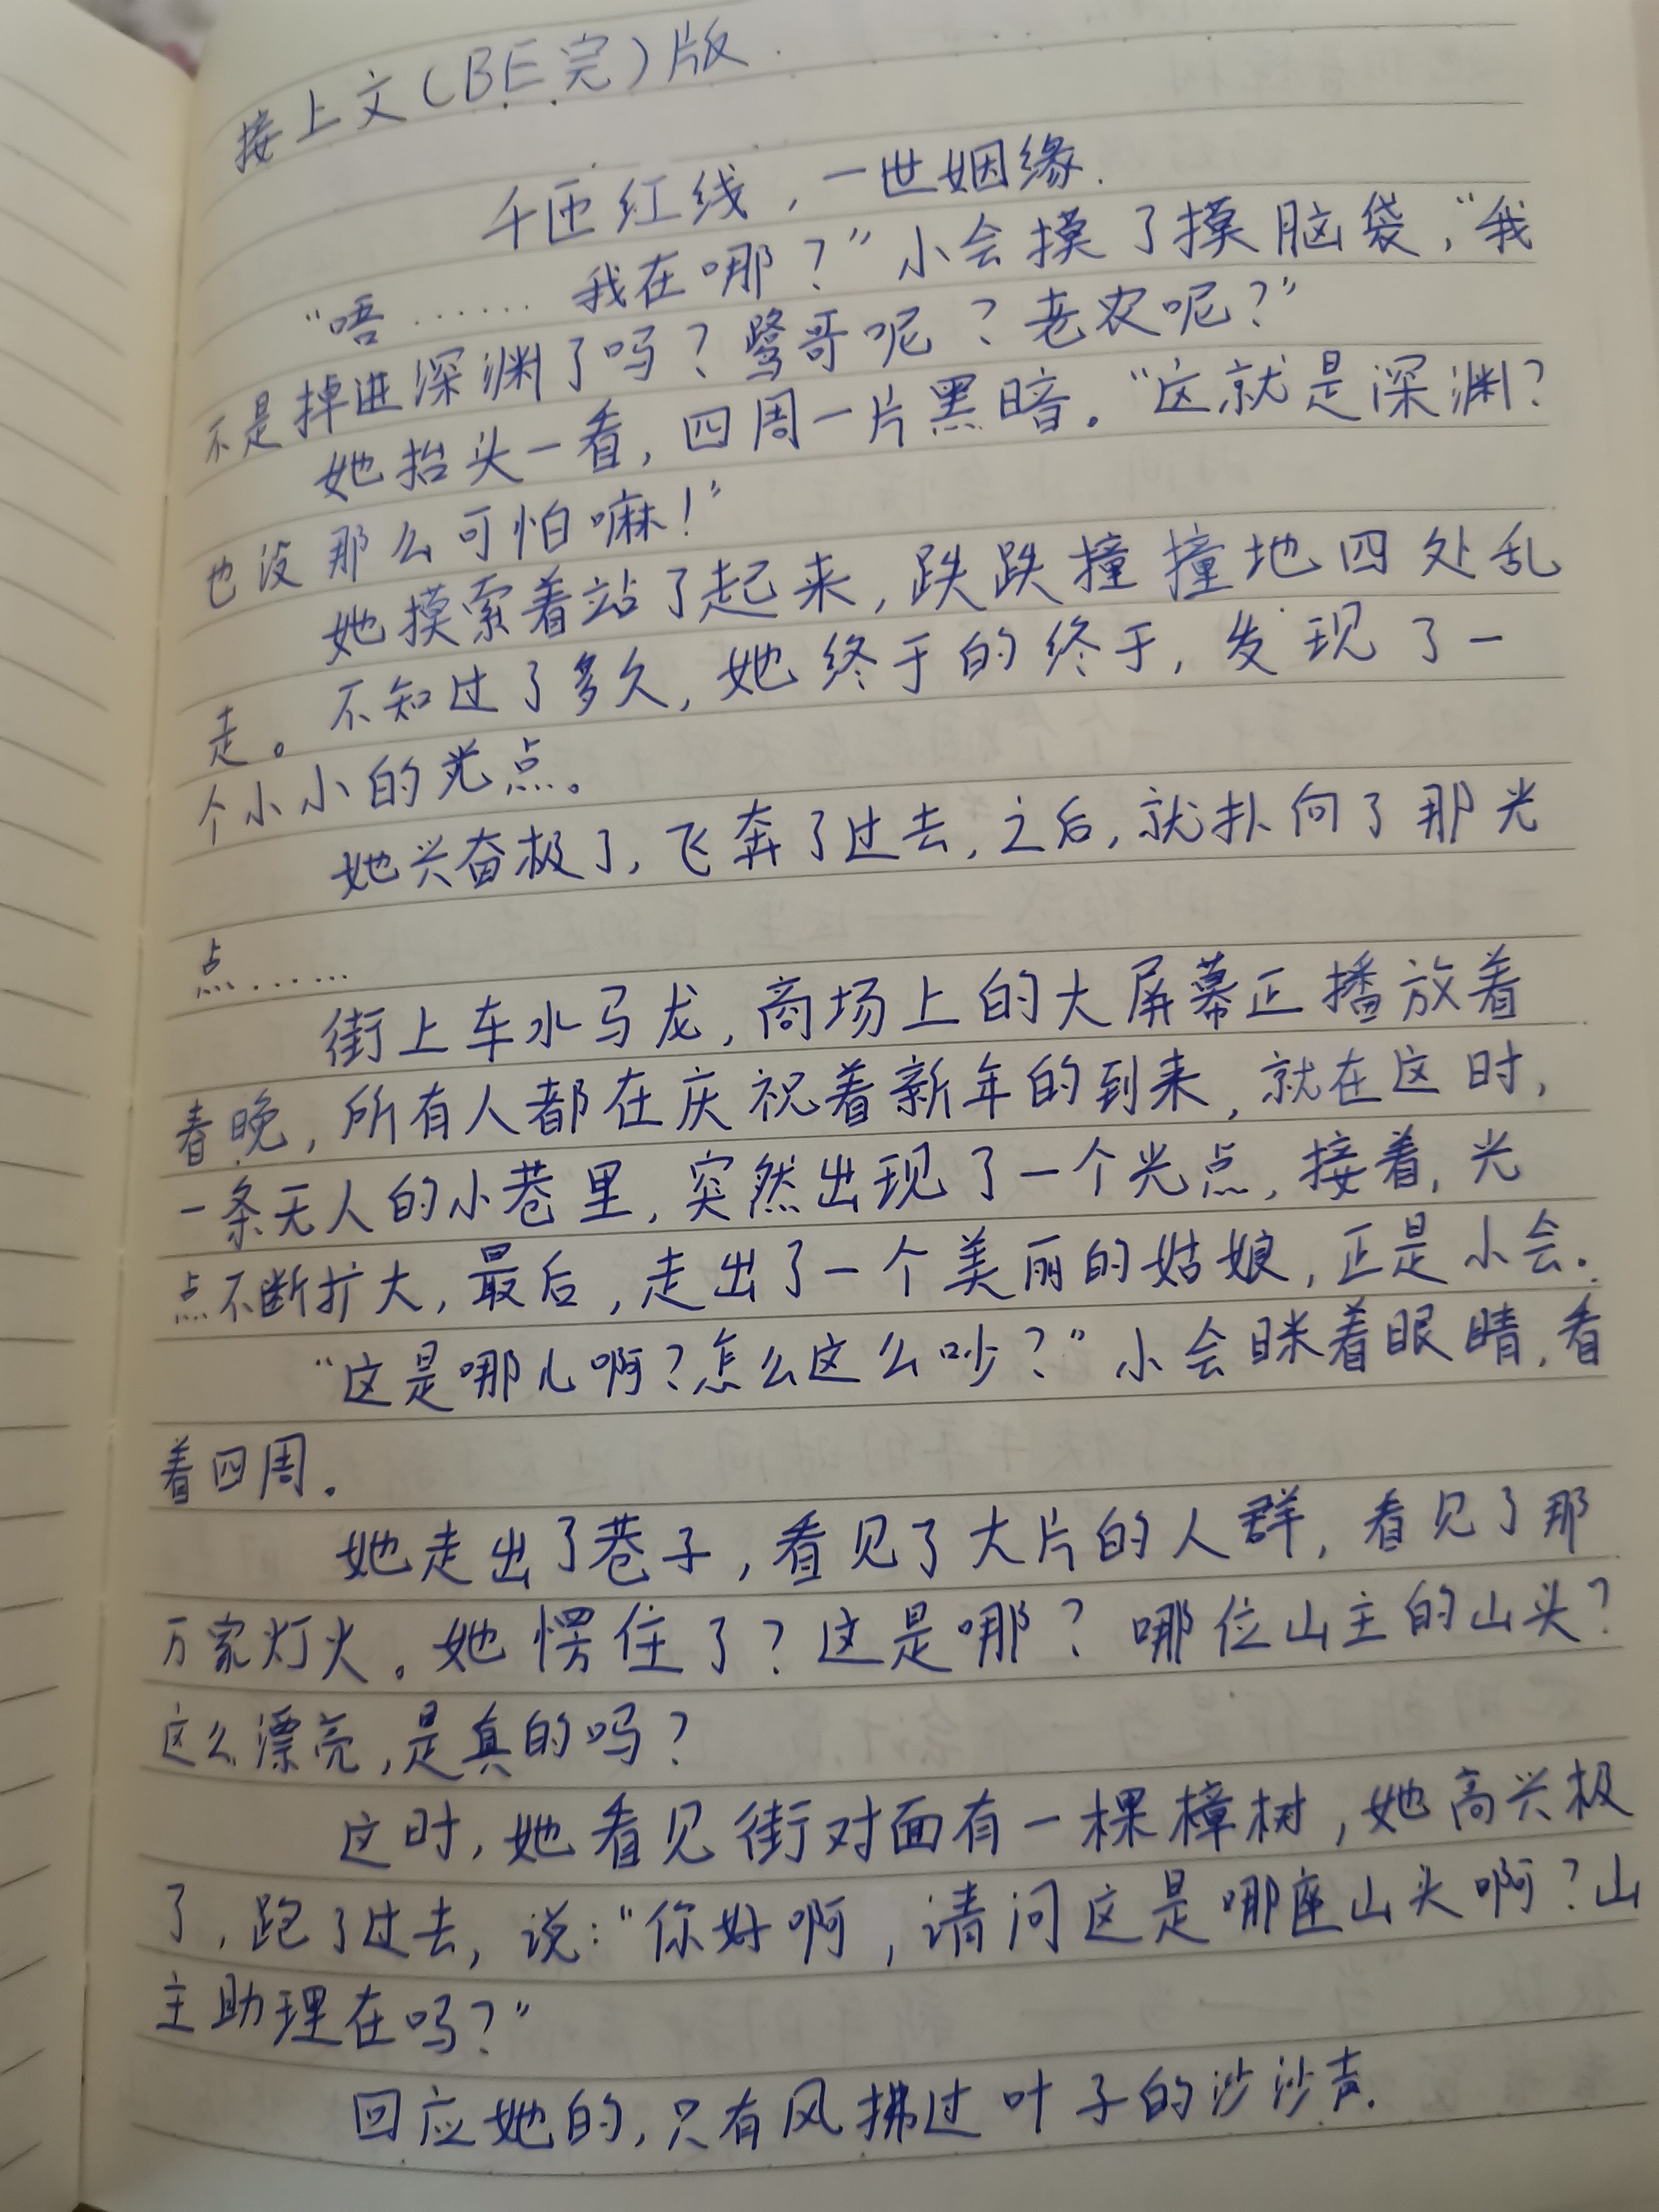 接上文(BE完)版.
千匝红线，一世姻缘.
“唔……我在哪？”小会摸了摸脑袋，“我
不是掉进深渊了吗？鹭哥呢？老农呢？”
她抬头一看，四周一片黑暗。“这就是深渊？
也没那么可怕嘛！”
她摸索着站了起来，跌跌撞撞地四处乱
走。不知过了多久，她终于的终于，发现了一
个小小的光点。
她兴奋极了，飞奔了过去，之后，就扑向了那光
点……
街上车水马龙，商场上的大屏幕正播放着
春晚，所有人都在庆祝着新年的到来，就在这时，
一条无人的小巷里，突然出现了一个光点，接着，光
点不断扩大，最后，走出了一个美丽的姑娘，正是小会.
“这是哪儿啊？怎么这么吵？”小会眯着眼睛，看
着四周.
她走出了巷子，看见了大片的人群，看见了那
万家灯火。她愣住了？这是哪？哪位山主的山头？
这么漂亮，是真的吗？
这时，她看见街对面有一棵樟树，她高兴极
了，跑了过去，说：“你好啊，请问这是哪座山头啊？山
主助理在吗？”
回应她的，只有风拂过叶子的沙沙声.